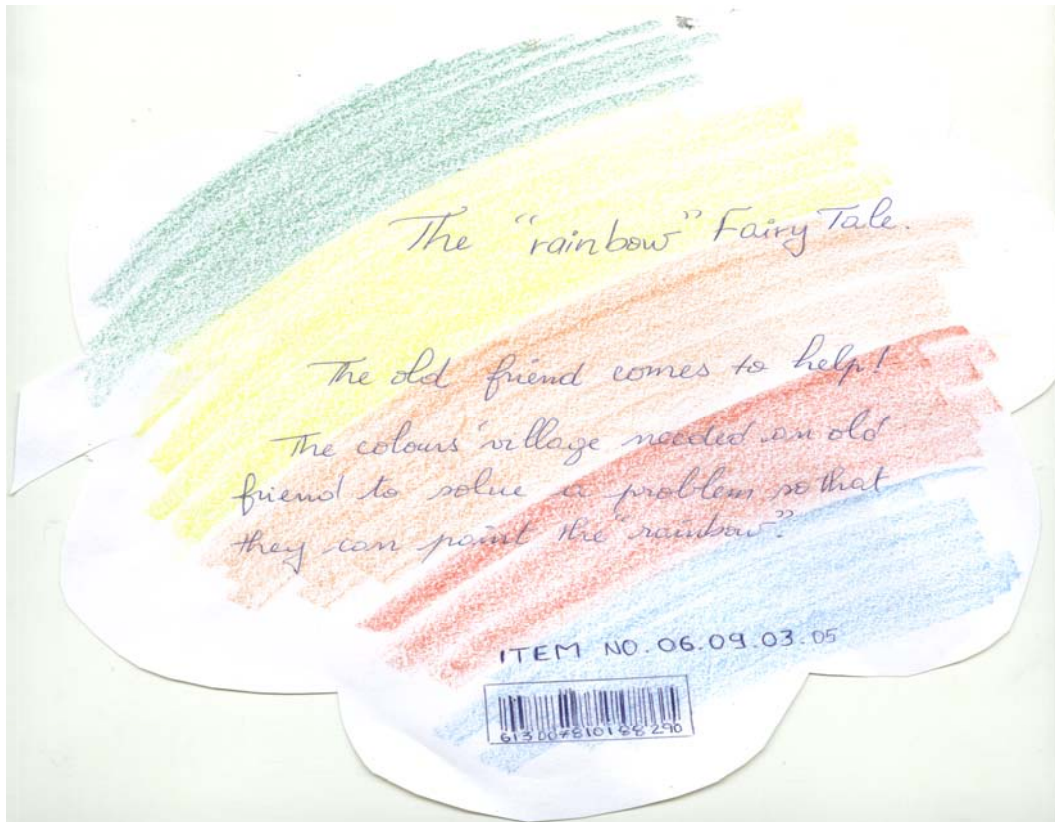 The "rainbow" Fairy Tale.
The old friend comes to help!
The colours' village needed an old
friend to solve a problem so that
they can paint the "rainbow".
ITEM NO. 06.09.03.05